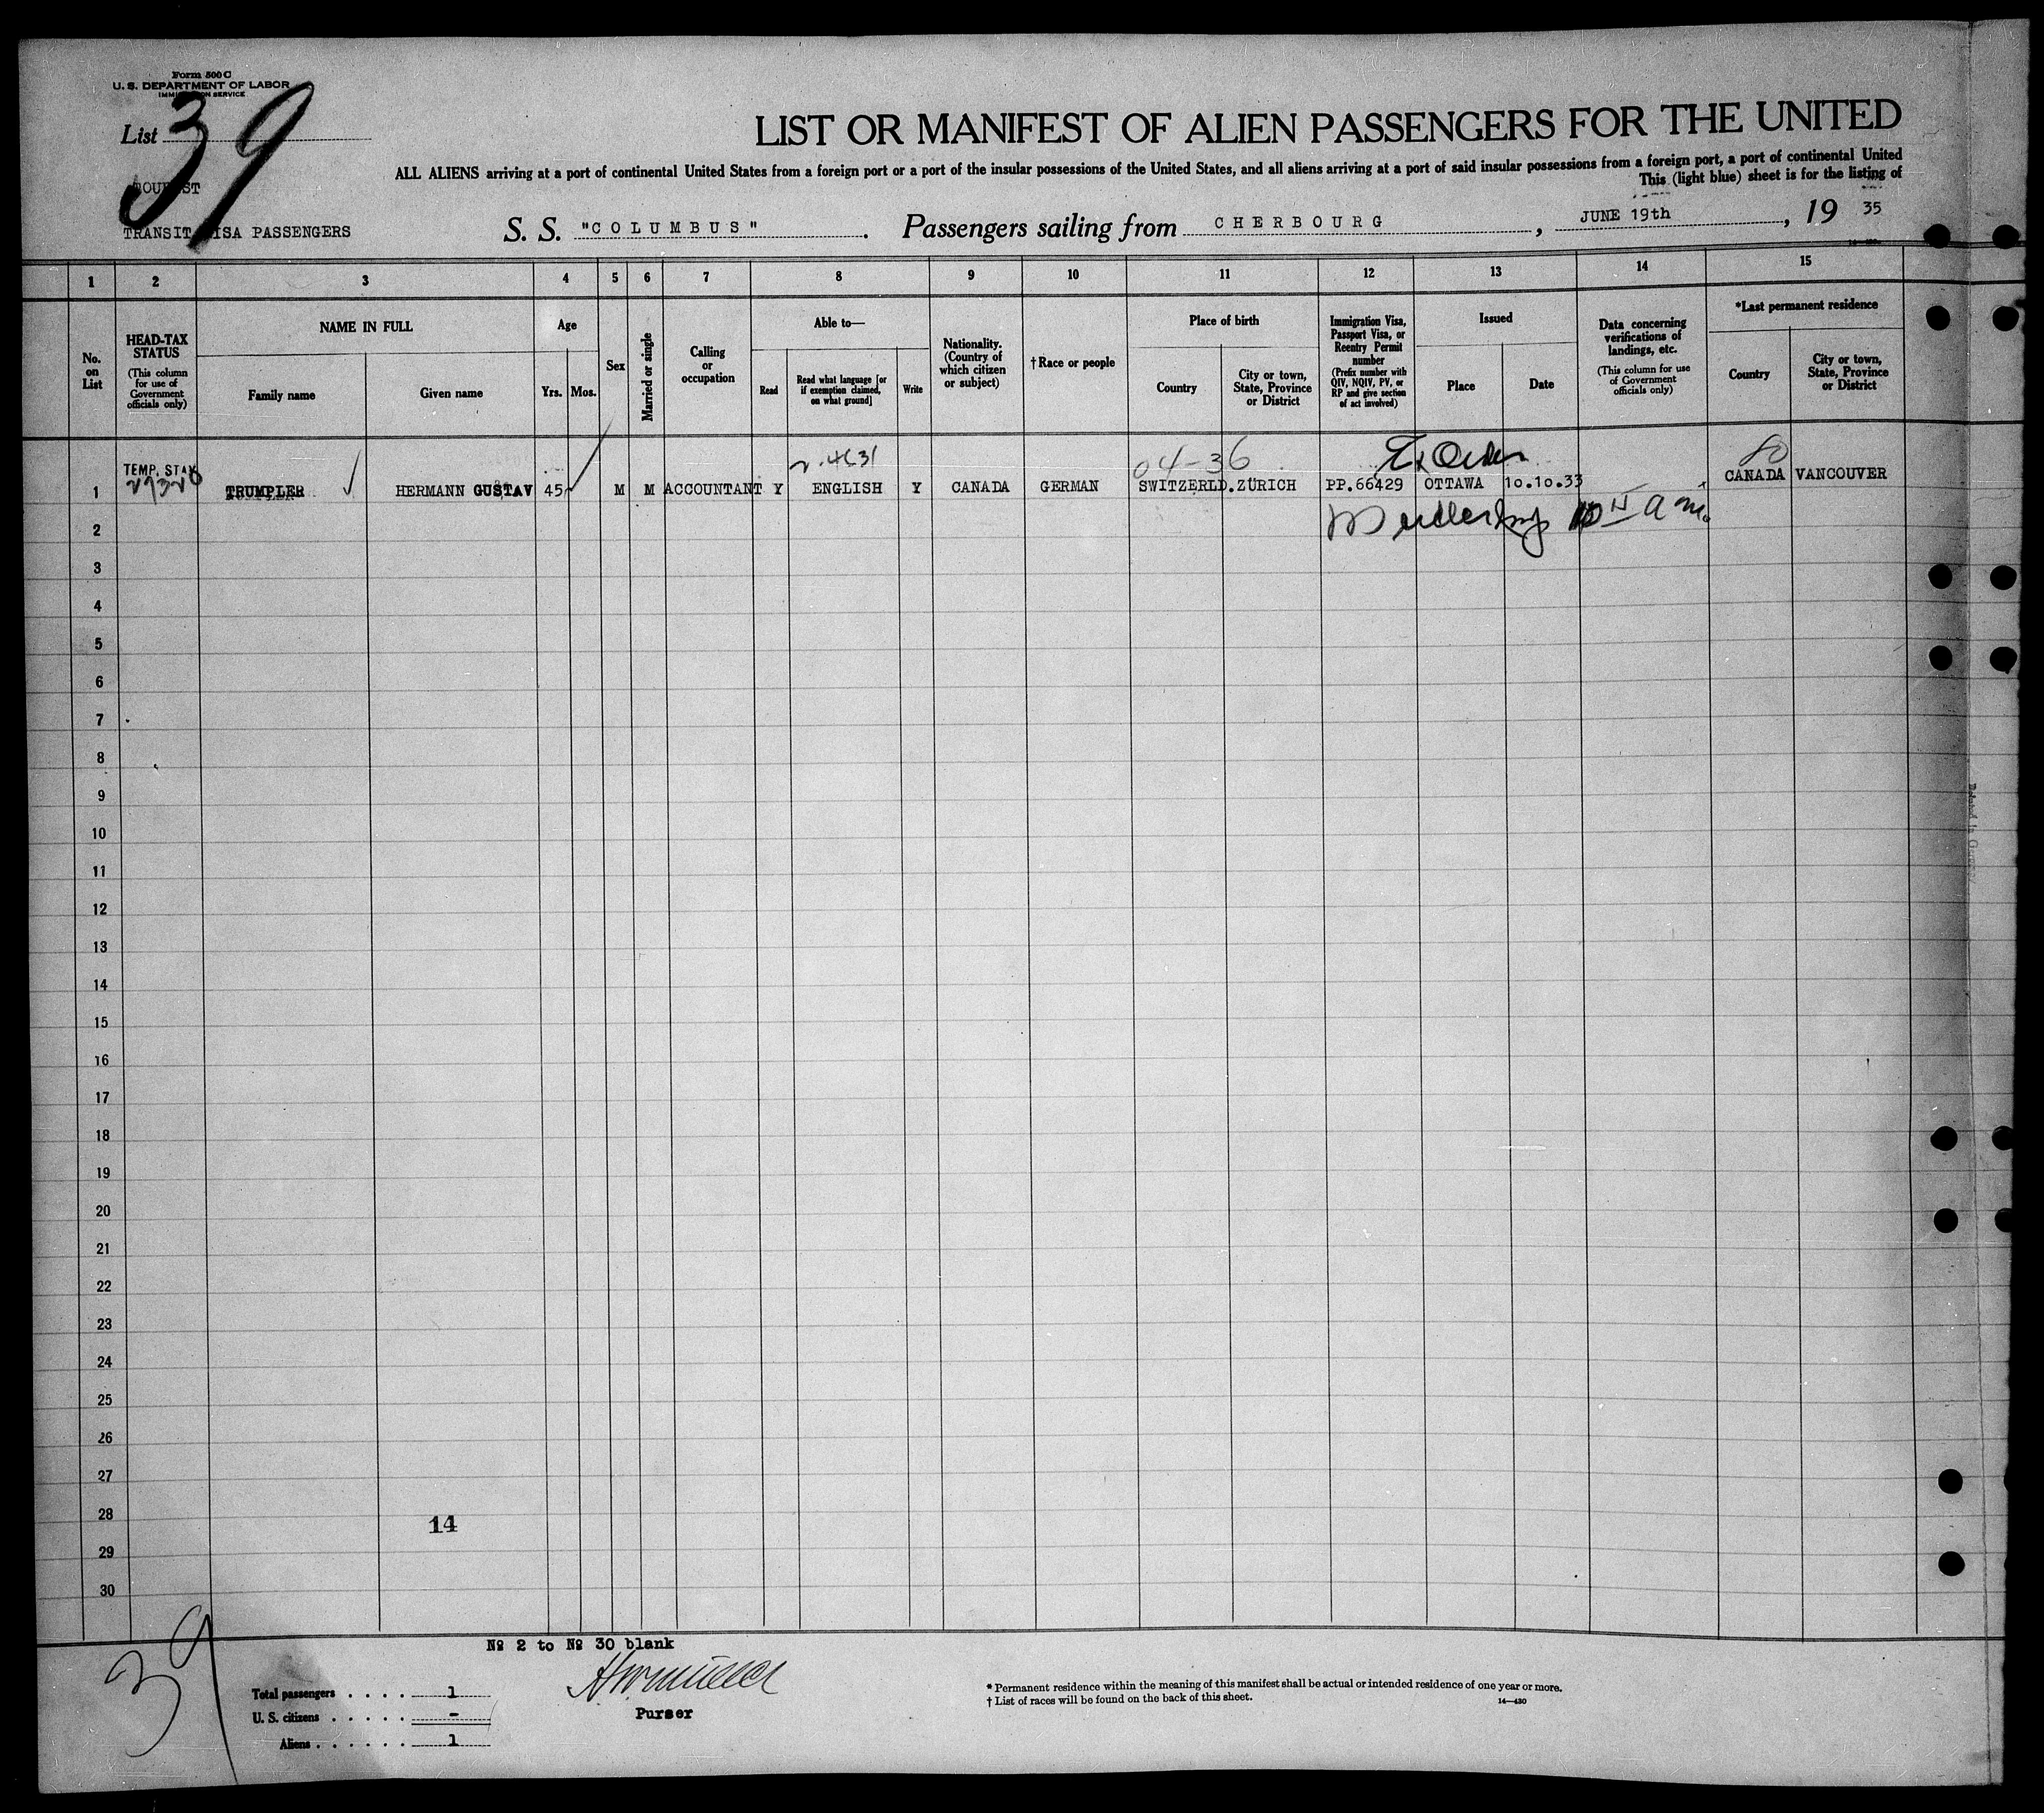 Form 500 C
U. S. DEPARTMENT OF LABOR
IMMIGRATION SERVICE
List 39
TOURIST
TRANSIT VISA PASSENGERS
LIST OR MANIFEST OF ALIEN PASSENGERS FOR THE UNITED
ALL ALIENS arriving at a port of continental United States from a foreign port or a port of the insular possessions of the United States, and all aliens arriving at a port of said insular possessions from a foreign port, a port of continental United
This (light blue) sheet is for the listing of
S. S. "COLUMBUS". Passengers sailing from CHERBOURG, JUNE 19th, 19 35
1 2 3 4 5 6 7 8 9 10 11 12 13 14 15
No. on List
HEAD-TAX STATUS
(This column for use of Government officials only)
NAME IN FULL
Family name
Given name
Age
Yrs.
Mos.
Sex
Married or single
Calling or occupation
Able to—
Read
Read what language [or if exemption claimed, on what ground]
Write
Nationality. (Country of which citizen or subject)
† Race or people
Place of birth
Country
City or town, State, Province or District
Immigration Visa, Passport Visa, or Reentry Permit number
(Prefix number with QIV, NQIV, PV, or RP and give section of act involved)
Issued
Place
Date
Data concerning verifications of landings, etc.
(This column for use of Government officials only)
*Last permanent residence
Country
City or town, State, Province or District
04-36
TEMP. STAY
1 TRUMPLER HERMANN GUSTAV 45 M M ACCOUNTANT Y ENGLISH Y CANADA GERMAN SWITZERLD. ZÜRICH PP.66429 OTTAWA 10.10.33 CANADA VANCOUVER
2
3
4
5
6
7
8
9
10
11
12
13
14
15
16
17
18
19
20
21
22
23
24
25
26
27
28 14
29
30
39
№ 2 to № 30 blank
Total passengers . . . . 1
U. S. citizens . . . . . -
Aliens . . . . . . 1
Purser
* Permanent residence within the meaning of this manifest shall be actual or intended residence of one year or more.
† List of races will be found on the back of this sheet.
14—430